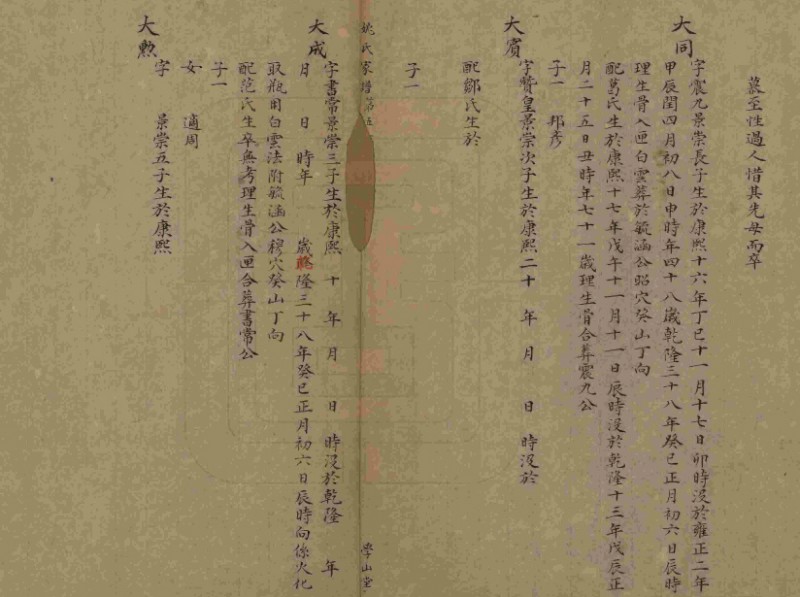 慕至性過人惜其先母而卒
大同
字震九景崇長子生於康熙十六年丁巳十一月十七日卯時沒於雍正二年
甲辰閏四月初八日申時年四十八歲乾隆三十八年癸巳正月初六日辰時
理生骨入匣白雲葬於毓涵公昭穴癸山丁向
配葛氏生於康熙十七年戊午十一月十一日辰時沒於乾隆十三年戊辰正
月二十五日丑時年七十一歲理生骨合葬震九公
子一 邦彥
大賓
字贊皇景崇次子生於康熙二十 年 月 日 時沒於
配鄒氏生於
子一
姚氏家譜第五
學山堂
大成
字書常景崇三子生於康熙 十 年 月 日 時沒於乾隆 年
月 日 時年 歲乾隆三十八年癸巳正月初六日辰時向係火化
取瓶用白雲法附毓涵公穆穴癸山丁向
配范氏生卒無考理生骨入匣合葬書常公
子一
女 適周
大勲
字 景崇五子生於康熙